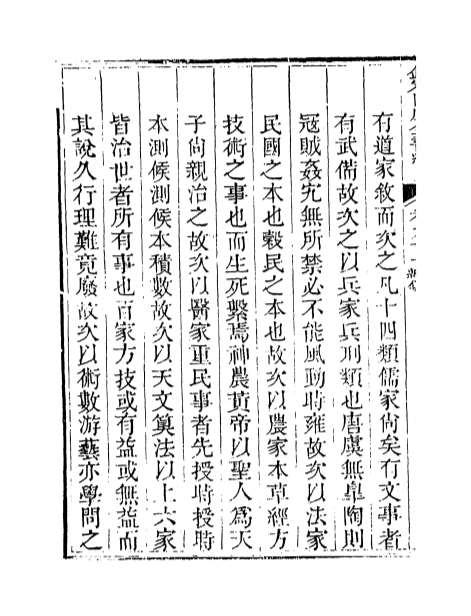 有道家敘而次之凡十四類儒家尚矣有文事者
有武備故次之以兵家兵刑類也唐虞無皋陶則
寇賊姦宄無所禁必不能風動時雍故次以法家
民國之本也穀民之本也故次以農家本草經方
技術之事也而生死繫焉神農黃帝以聖人為天
子尚親治之故次以醫家重民事者先授時授時
本測候測候本積數故次以天文算法以上六家
皆治世者所有事也百家方技或有益或無益而
其說久行理難竟廢故次以術數游藝亦學問之